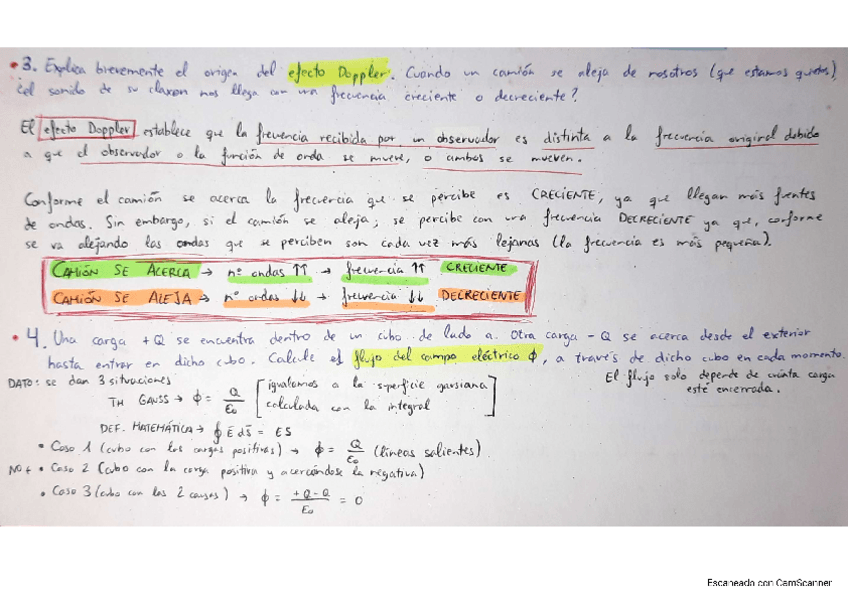 • 3. Explica brevemente el origen del efecto Doppler. Cuando un camión se aleja de nosotros (que estamos quietos)
¿el sonido de su claxon nos llega con una frecuencia creciente o decreciente?
El efecto Doppler establece que la frecuencia recibida por un observador es distinta a la frecuencia original debido
a que el observador o la función de onda se mueve, o ambos se mueven.
Conforme el camión se acerca la frecuencia que se percibe es CRECIENTE, ya que llegan más frentes
de ondas. Sin embargo, si el camión se aleja, se percibe con una frecuencia DECRECIENTE ya que, conforme
se va alejando las ondas que se perciben son cada vez más lejanas (la frecuencia es más pequeña).
CAMIÓN SE ACERCA → nº ondas ↑↑ → frecuencia ↑↑ CRECIENTE
CAMIÓN SE ALEJA → nº ondas ↓↓ → frecuencia ↓↓ DECRECIENTE
• 4. Una carga +Q se encuentra dentro de un cubo de lado a. Otra carga -Q se acerca desde el exterior
hasta entrar en dicho cubo. Calcule el flujo del campo eléctrico ϕ, a través de dicho cubo en cada momento.
DATO: se dan 3 situaciones
El flujo solo depende de cuánta carga
esté encerrada.
TH GAUSS → ϕ = Q/ε₀ [igualamos a la superficie gausiana
calculada con la integral]
DEF. MATEMÁTICA → ∮ E ds = ES
• Caso 1 (cubo con las cargas positivas) → ϕ = Q/ε₀ (líneas salientes).
• Caso 2 (cubo con la carga positiva y acercándose la negativa)
• Caso 3 (cubo con las 2 cargas) → ϕ = +Q-Q/ε₀ = 0
Escaneado con CamScanner